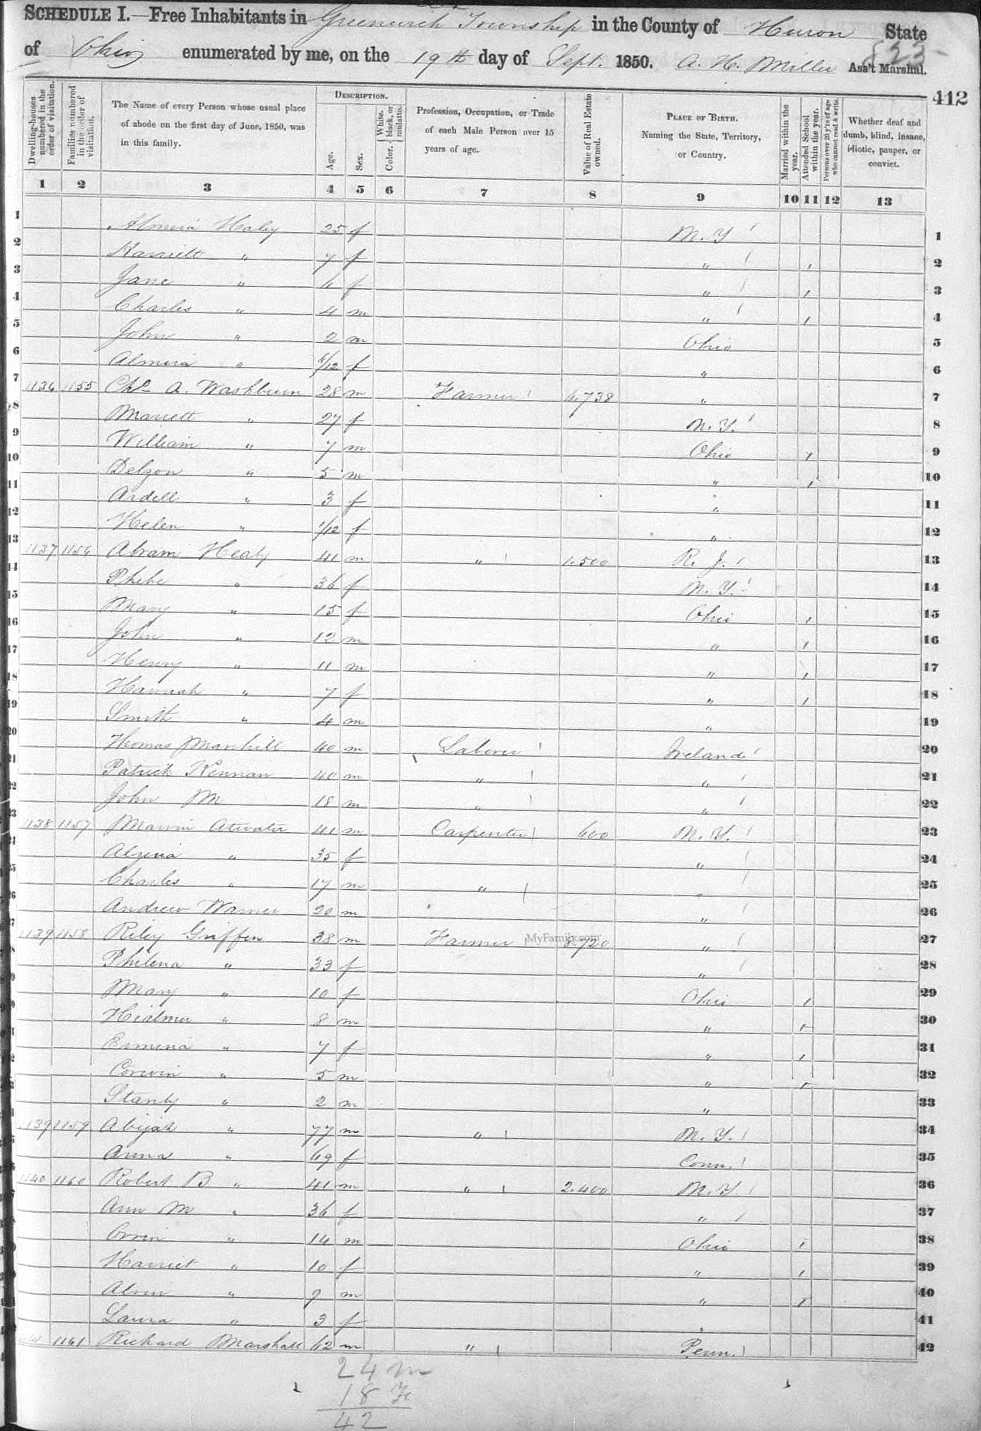 SCHEDULE I.—Free Inhabitants in Greenwich Township in the County of Huron State
of Ohio enumerated by me, on the 19th day of Sept. 1850. A. H. Miller Ass't Marshal.
823
412
Dwelling-houses numbered in the order of visitation.
Families numbered in the order of visitation.
The Name of every Person whose usual place of abode on the first day of June, 1850, was in this family.
DESCRIPTION.
Age.
Sex.
Color, { White, black, or mulatto.
Profession, Occupation, or Trade of each Male Person over 15 years of age.
Value of Real Estate owned.
PLACE OF BIRTH. Naming the State, Territory, or Country.
Married within the year.
Attended School within the year.
Persons over 20 y'rs of age who cannot read & write.
Whether deaf and dumb, blind, insane, idiotic, pauper, or convict.
1 2 3 4 5 6 7 8 9 10 11 12 13
1 Almira Haley 25 f N.Y / 1
2 Harriett " 7 f " / / 2
3 Jane " 6 f " / / 3
4 Charles " 4 m " / / 4
5 John " 2 m Ohio 5
6 Almira " /12 f " 6
7 1136 1155 Chs A. Washburn 28 m Farmer / 6,738 " 7
8 Mariett " 27 f N.Y. / 8
9 William " 7 m Ohio / 9
10 Delzon " 5 m " / 10
11 Ardell " 3 f " 11
12 Helen " /12 f " 12
13 1137 1156 Abram Healy 41 m " / 1.500 R. I. / 13
14 Phebe " 36 f N.Y. / 14
15 Mary " 15 f Ohio / 15
16 John " 12 m " / 16
17 Henry " 11 m " / 17
18 Hannah " 7 f " / 18
19 Smith " 4 m " 19
20 Thomas 40 m Laborer / Ireland / 20
21 Patrick Kennan 40 m " / " / 21
22 John M 18 m " / " / 22
23 1138 1157 Marvin Atwater 41 m Carpenter / 600 N.Y. / 23
24 Alzina " 35 f " / 24
25 Charles " 17 m " / " / 25
26 Andrew Warner 20 m " " / 26
27 1139 1158 Riley Griffin 38 m Farmer / MyFamily.com " / 27
28 Philena " 33 f " / 28
29 Mary " 10 f Ohio / 29
30 Hialmer " 8 m " / 30
31 Ermina " 7 f " / 31
32 Corwin " 5 m " / 32
33 Stanly " 2 m " 33
34 1139 1159 Abijah " 77 m " / N.Y. / 34
35 Anna " 69 f Conn. / 35
36 1140 1160 Robert B " 41 m " / 2.400 N.Y / 36
37 Ann M " 36 f " / 37
38 Orvin " 14 m Ohio / 38
39 Harriet " 10 f " / 39
40 Alvin " 9 m " / 40
41 Laura " 3 f " 41
42 1161 Richard Marshall 62 m " / Penn. / 42
24 m
18 Fe
42